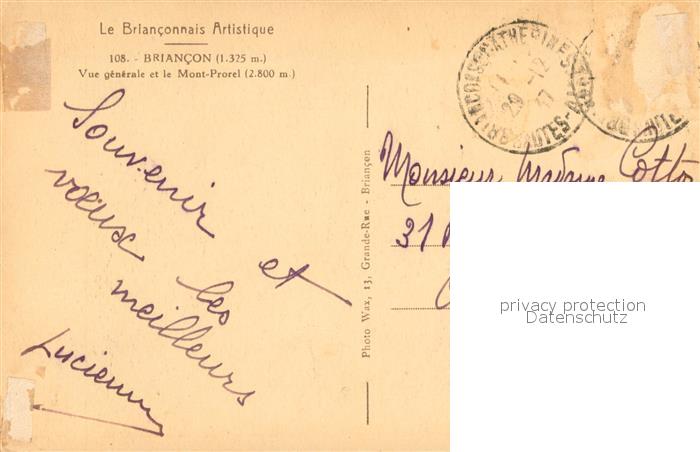 Le Briançonnais Artistique
108. - BRIANÇON (1.325 m.)
Vue générale et le Mont-Prorel (2.800 m.)
Souvenir et
vœux les
meilleurs
Lucienne
Photo Wax, 13, Grande-Rue - Briançon
29 -12
Monsieur Madame
31
privacy protection
Datenschutz